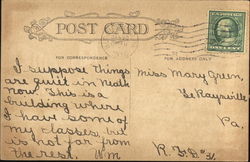 POST CARD
FOR CORRESPONDENCE
FOR ADDRESS ONLY
I suppose things
are quiet in
now. This is a
building where
I have some of
my classes, but
is not far from
the rest. M.M
Miss Mary Green
LeRaysville
Pa.
R.F.D.